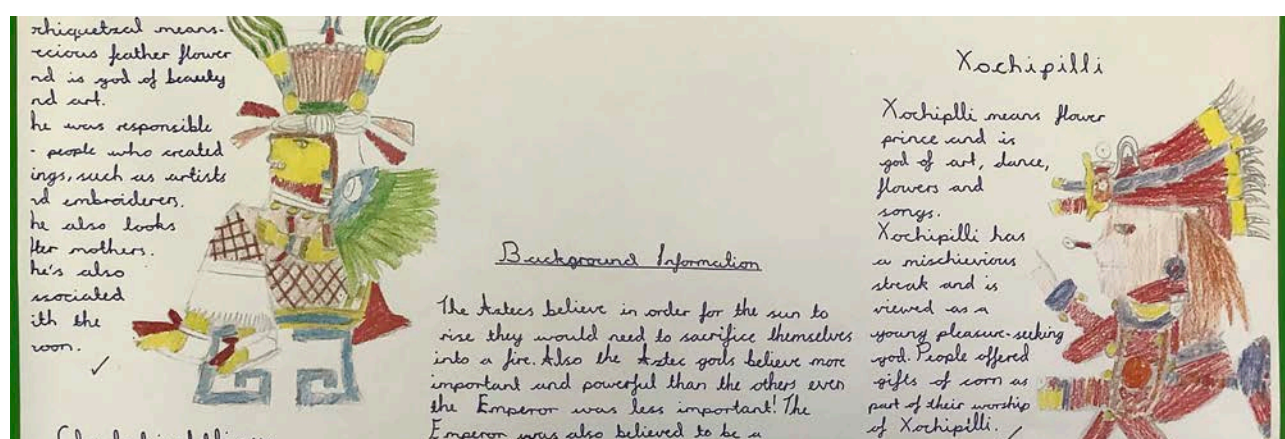 chiquetzal means-
recious feather flower
nd is god of beauty
nd art.
he was responsible
- people who created
ings, such as artists
nd embroiderers.
he also looks
fter mothers.
he's also
ssociated
ith the
oon.
Background Information
The Aztecs believe in order for the sun to
rise they would need to sacrifice themselves
into a fire. Also the Aztec gods believe more
important and powerful than the others even
the Emperor was less important! The
Emperor was also believed to be a
Xochipilli
Xochiplli means flower
prince and is
god of art, dance,
flowers and
songs.
Xochipilli has
a mischievious
streak and is
viewed as a
young pleasure-seeking
god. People offered
gifts of corn as
part of their worship
of Xochipilli.